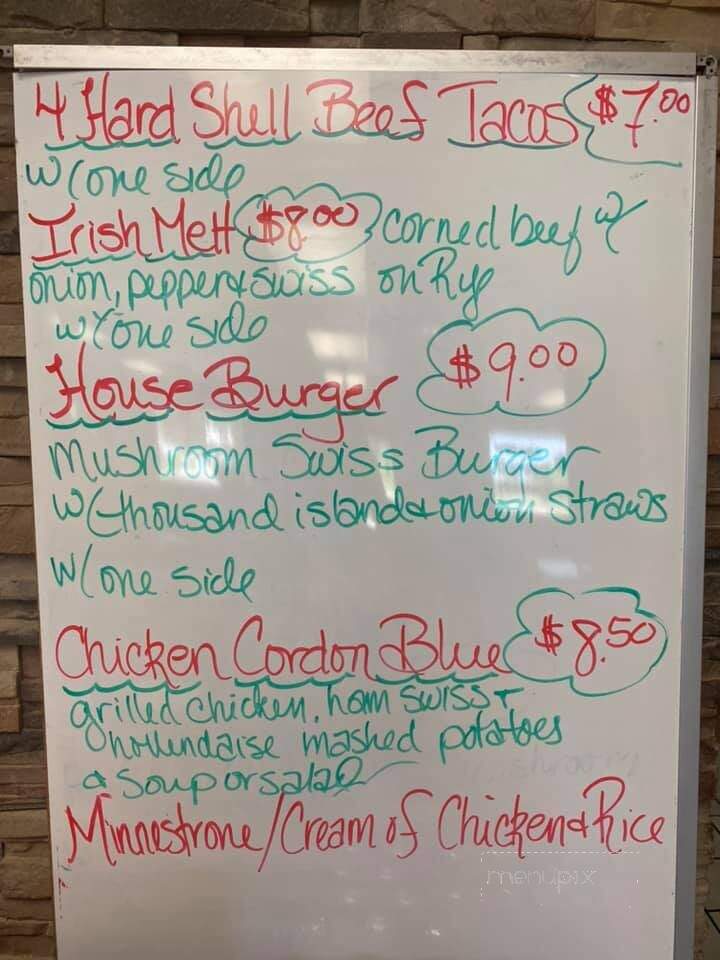 4 Hard Shell Beef Tacos $7.00
w/ one side
Irish Melt $8.00 corned beef w/
onion, pepper & swiss on Rye
w/ one side
House Burger $9.00
Mushroom Swiss Burger
w/ thousand island & onion straws
w/ one side
Chicken Cordon Blue $8.50
grilled chicken, ham swiss +
hollendaise mashed potatoes
& soup or salad
Minnestrone/Cream of Chicken & Rice
menupix